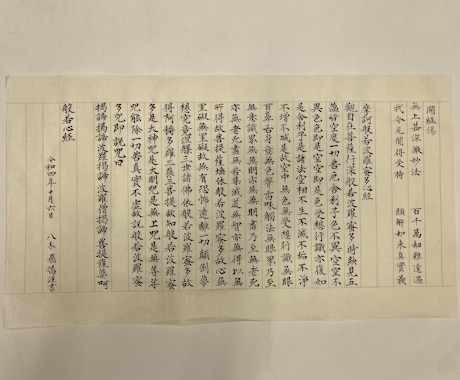 開經偈
無上甚深微妙法　百千萬劫難遭遇
我今見聞得受持　願解如来真實義
摩訶般若波羅蜜多心經
觀自在菩薩行深般若波羅蜜多時照見五
蘊皆空度一切苦厄舎利子色不異空空不
異色色即是空空即是色受想行識亦復如
是舎利子是諸法空相不生不滅不垢不浄
不増不減是故空中無色無受想行識無眼
耳鼻舌身意無色聲香味觸法無眼界乃至
無意識界無無明亦無無明盡乃至無老死
亦無老死盡無苦集滅道無智亦無得以無
所得故菩提薩埵依般若波羅蜜多故心無
罣礙無罣礙故無有恐怖遠離一切顛倒夢
想究竟涅槃三世諸佛依般若波羅蜜多故
得阿耨多羅三藐三菩提故知般若波羅蜜
多是大神咒是大明咒是無上咒是無等等
咒能除一切苦真實不虚故説般若波羅蜜
多咒即説咒曰
揭諦揭諦波羅揭諦波羅僧揭諦菩提薩婆訶
般若心經
令和四年十月六日　八木　謹書